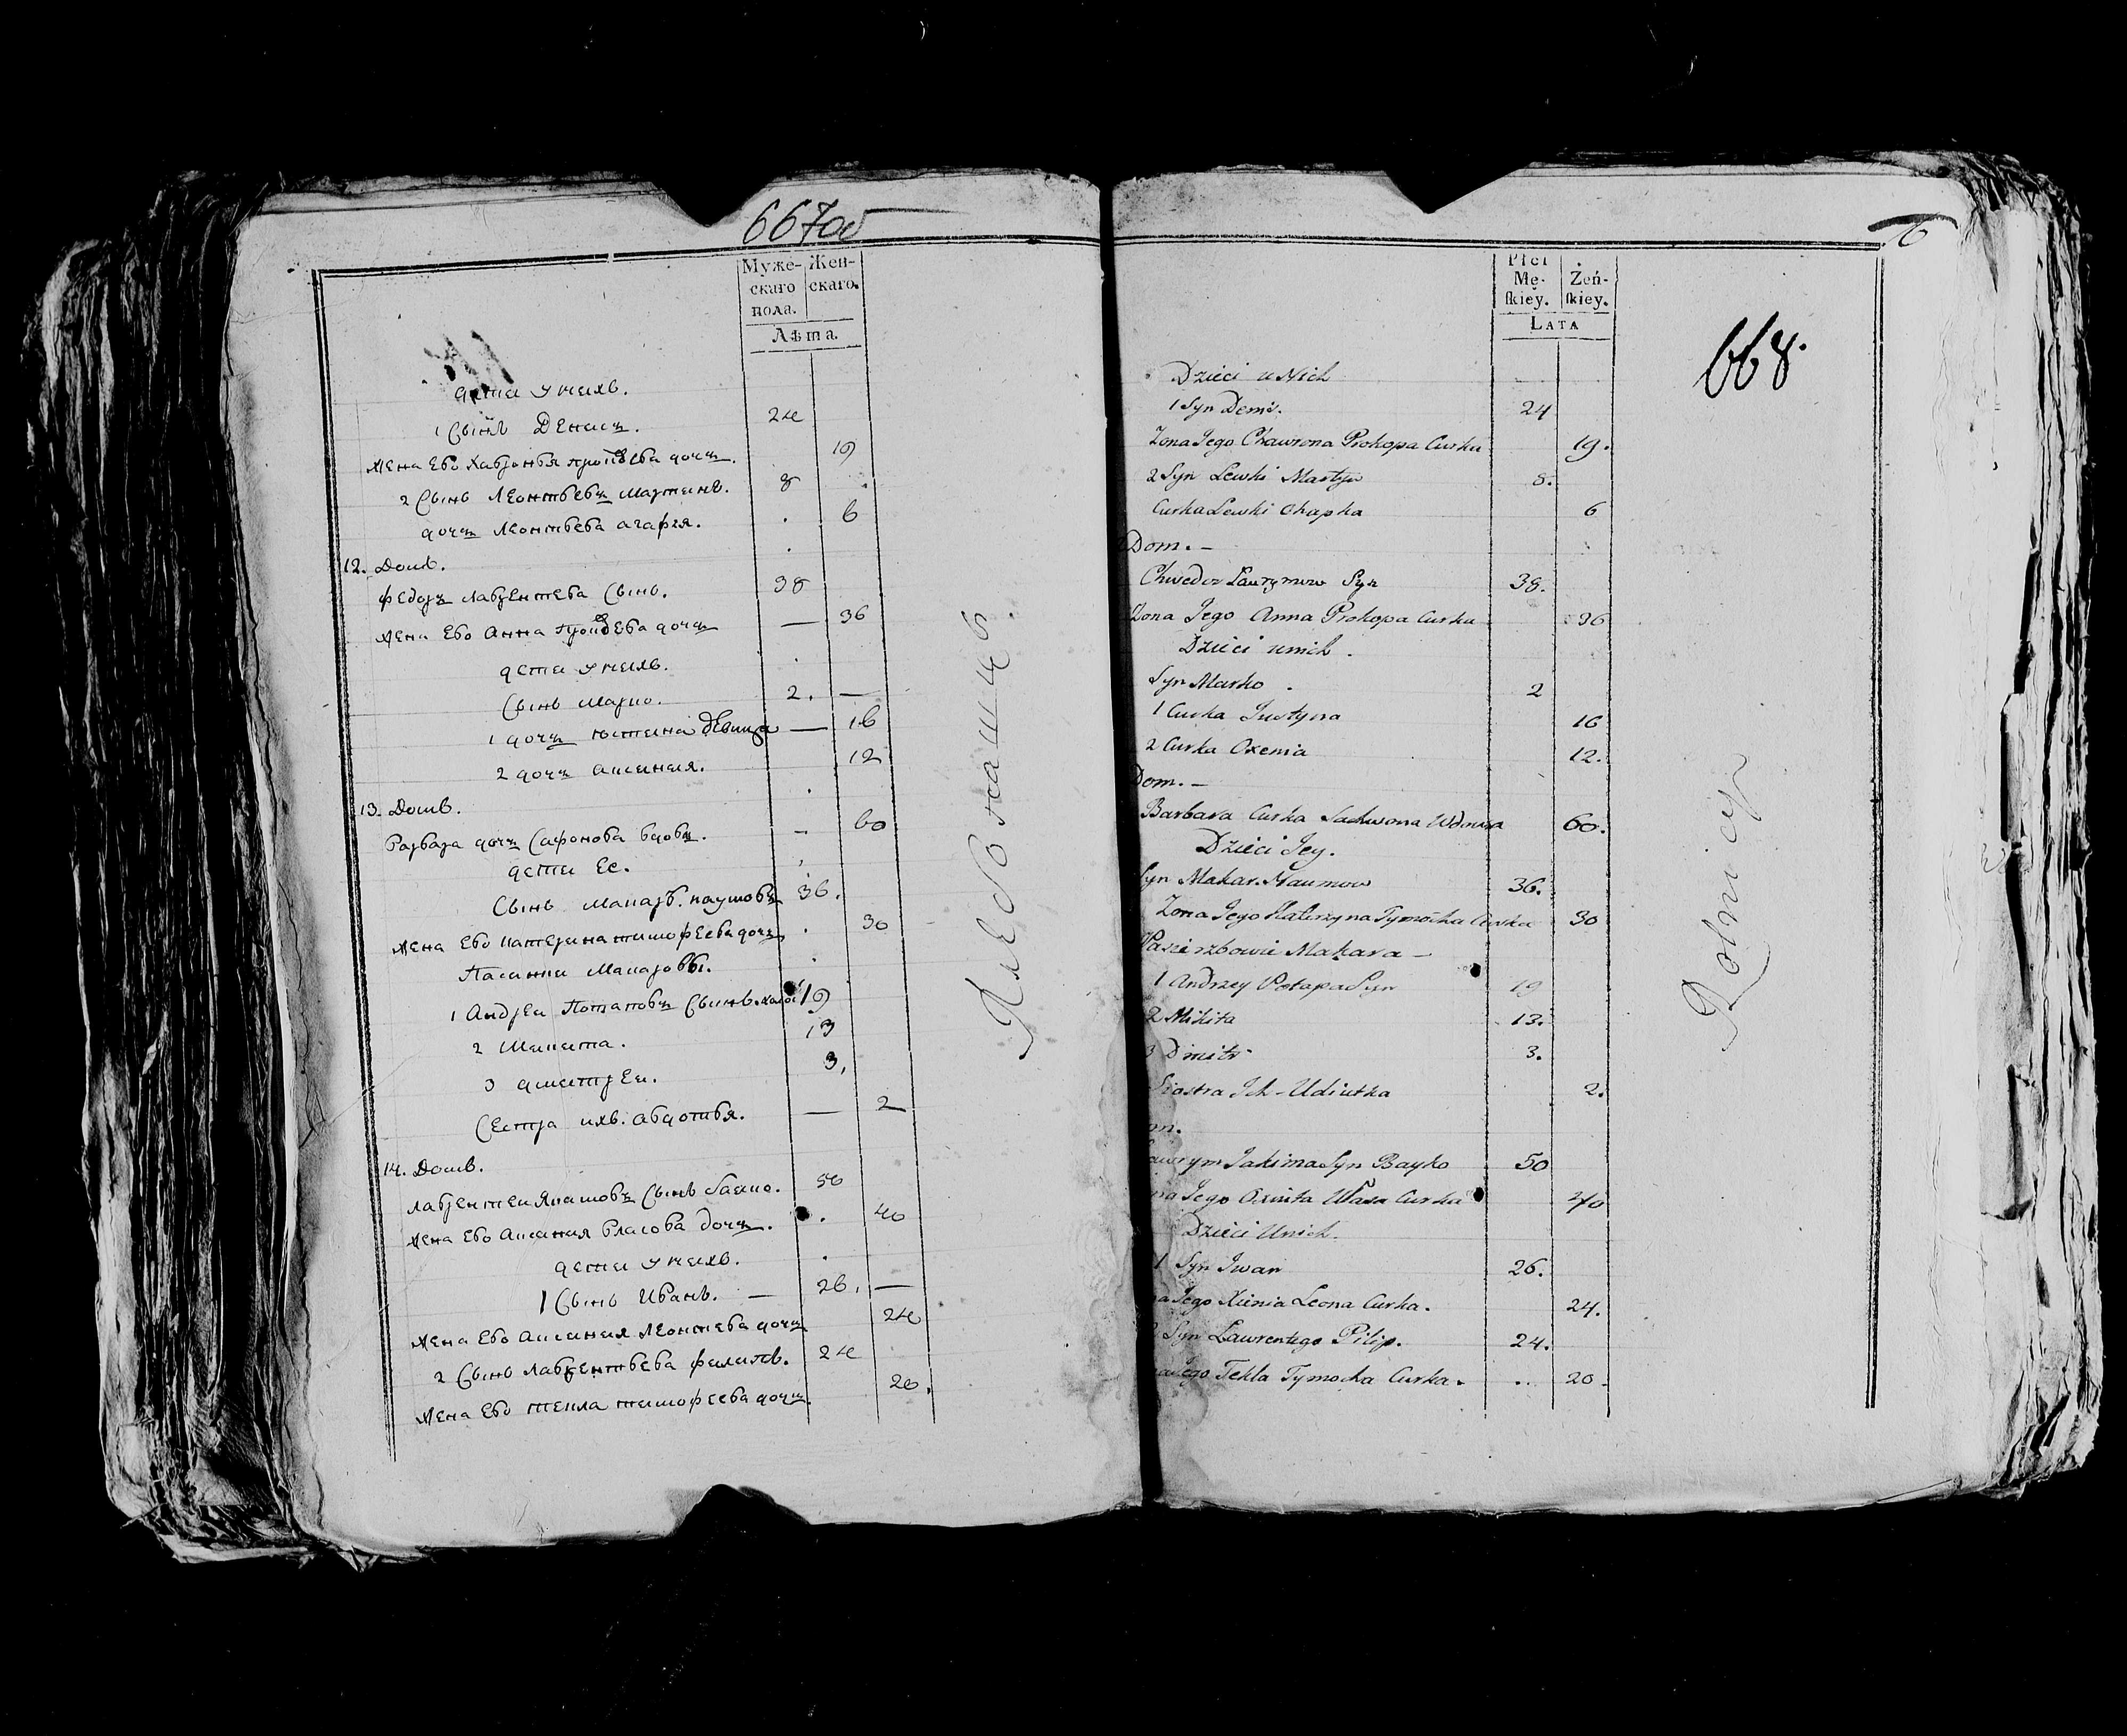 667об
Муже- Жен-
скаго скаго.
пола.
Лѣта.
дети у нихъ.
1 Сынъ Денисъ. 24
Жена Ево Хавронья дочь. 19
2 Сынъ Леонтьевъ Мартинъ. 8
дочь Леонтьева агафия. 6
12. Домъ.
Федоръ лаврентева Сынъ. 38
Жена Ево Анна дочь — 36
дети у нихъ.
Сынъ Марко. 2. —
1 дочь юстина девица — 16
2 дочь аксиния. 12
13. Домъ.
Варвара дочь Сафонова вдова. — 60
дети Ее.
Сынъ Макаръ. наумовъ 36.
Жена Ево катерина тимофеева дочь 30
Пасинки Макаровы.
1 Андреи Потаповъ Сынъ. 19
2 Микита. 13
3 дмитреи. 3.
Сестра ихъ. авдотья. — 2
14. Домъ.
лаврентеи Якимовъ Сынъ баико. 50
Жена Ево аксиния власова дочь. 40
дети у нихъ.
1 Сынъ Иванъ. — 26. —
Жена Ево аксиния леонтева дочь 24
2 Сынъ лаврентьева филипъ. 24
Жена Ево текла тимофеева дочь. 20.
Хлебопашцы
6
Płci
Mę- Żeń-
skiey. skiey.
LATA
668.
Dzieci u Nich
1 Syn Denis. 24
Zona Jego Chawrona Prokopa Curka 19.
2 Syn Lewki Martyn 8.
Curka Lewki Ohapka 6
Dom. —
Chwedor Laurymow Syn 38.
Zona Jego Anna Prokopa Curka 36
Dzieci unich.
Syn Marko. 2
1 Curka Justyna 16
2 Curka Oxenia 12.
Dom. —
Barbara Curka Sachwona Wdowa 60.
Dzieci Jey.
Syn Makar. Naumow 36.
Zona Jego Katerzyna Tymocha Curka 30
Pasierzbowie Makara —
1 Andrzey Potapa Syn 19
2 Mikita 13.
3 Dmitr 3.
Siostra Ich - Udiutka 2.
om.
awrym Jakima Syn Bayko 50
na Jego Oxinia Własa Curka 40
Dzieci Unich.
1 Syn Iwan 26.
na Jego Xienia Leona Curka. 24.
Syn Lawrentego Pilip. 24.
na Jego Tekla Tymocha Curka. .. 20.
Rolnicy